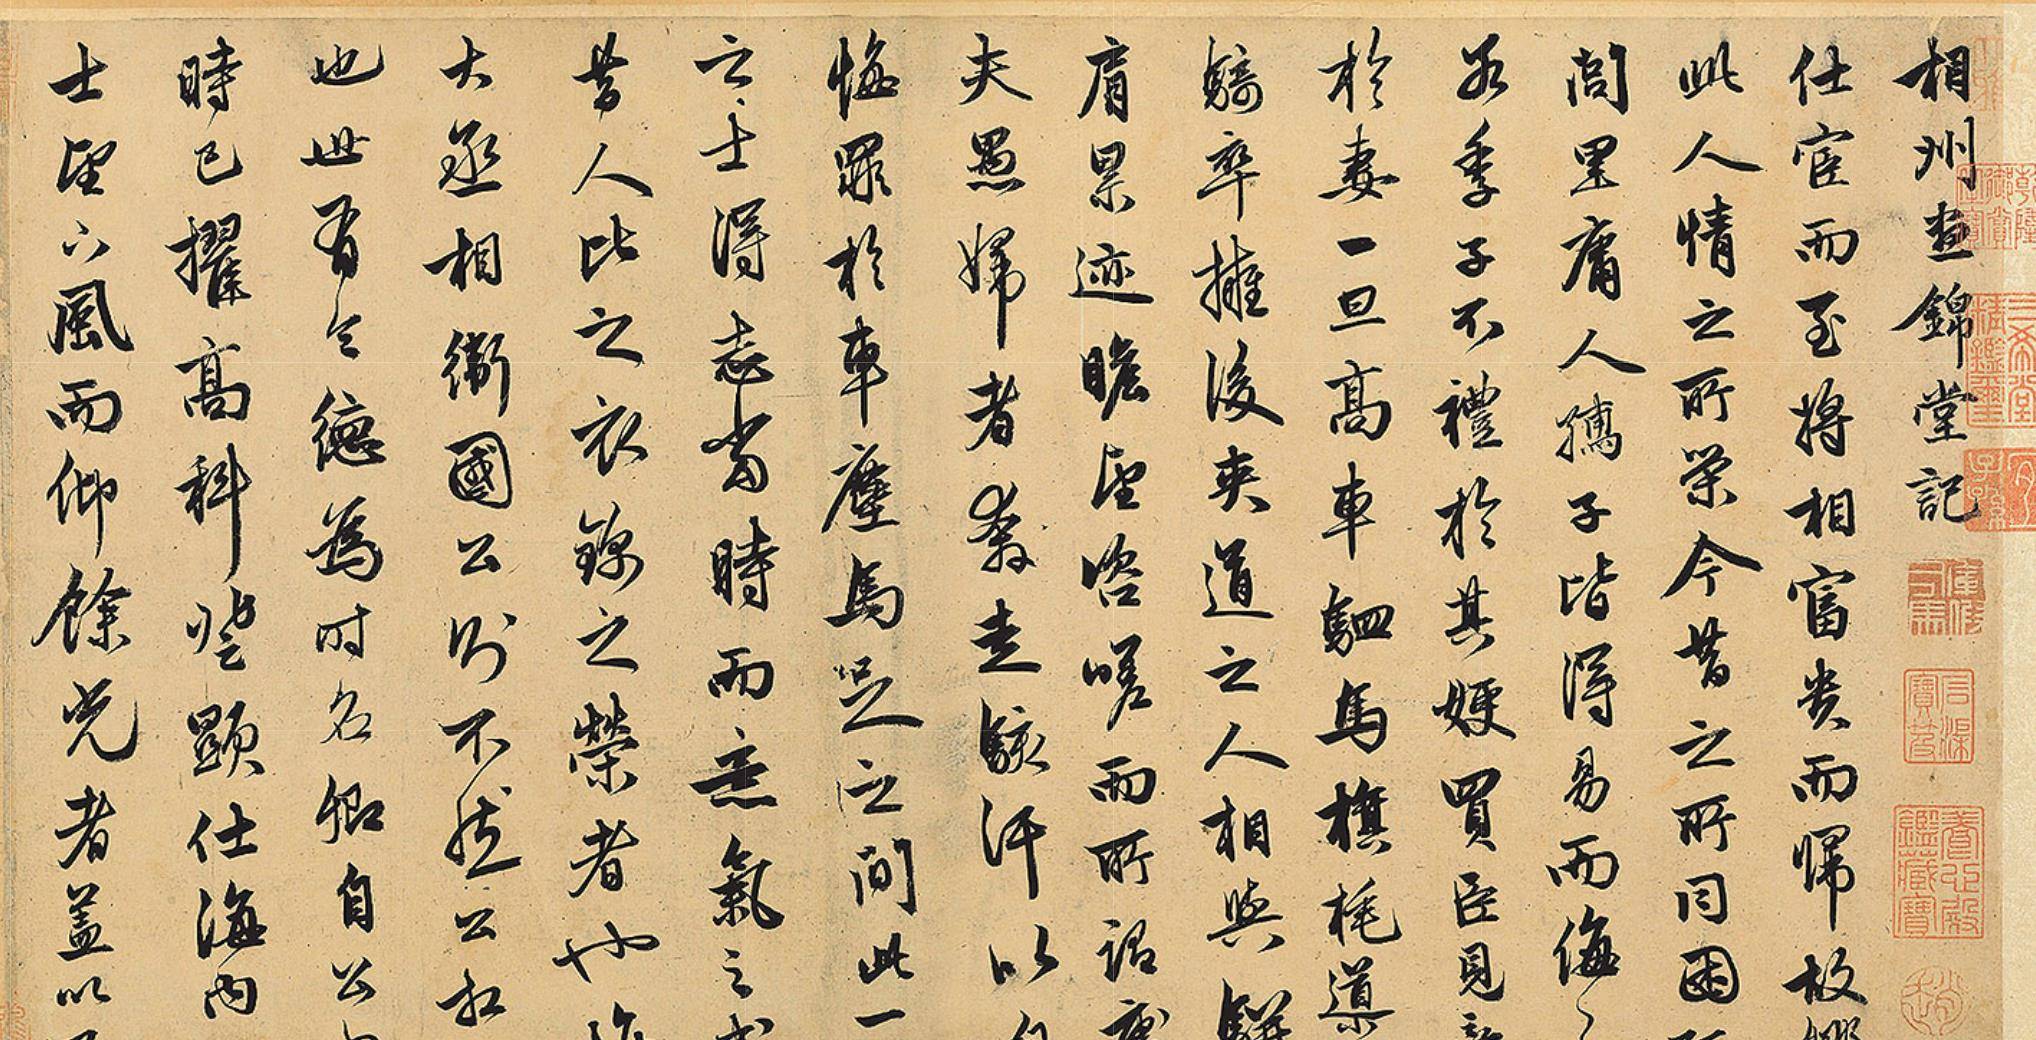 相州晝錦堂記
仕宦而至將相富貴而歸故鄉
此人情之所榮今昔之所同困
閭里庸人孺子皆得易而侮之
若季子不禮於其嫂買臣見
於妻一旦高車駟馬旗旄導
騎卒擁後夾道之人相與駢
肩累迹瞻望咨嗟而所謂庸
夫愚婦者奔走駭汗以
悔罪於車塵馬足之間此一
之士得志當時而意氣之盛
昔人比之衣錦之榮者也
大丞相衛國公則不然公相
也世有令德為時名卿自公
時已擢高科登顯仕海內
士望下風而仰餘光者蓋以
乾隆御賞之寶
三希堂精鑑璽
宜子孫
石渠寶笈
養心殿鑑藏寶